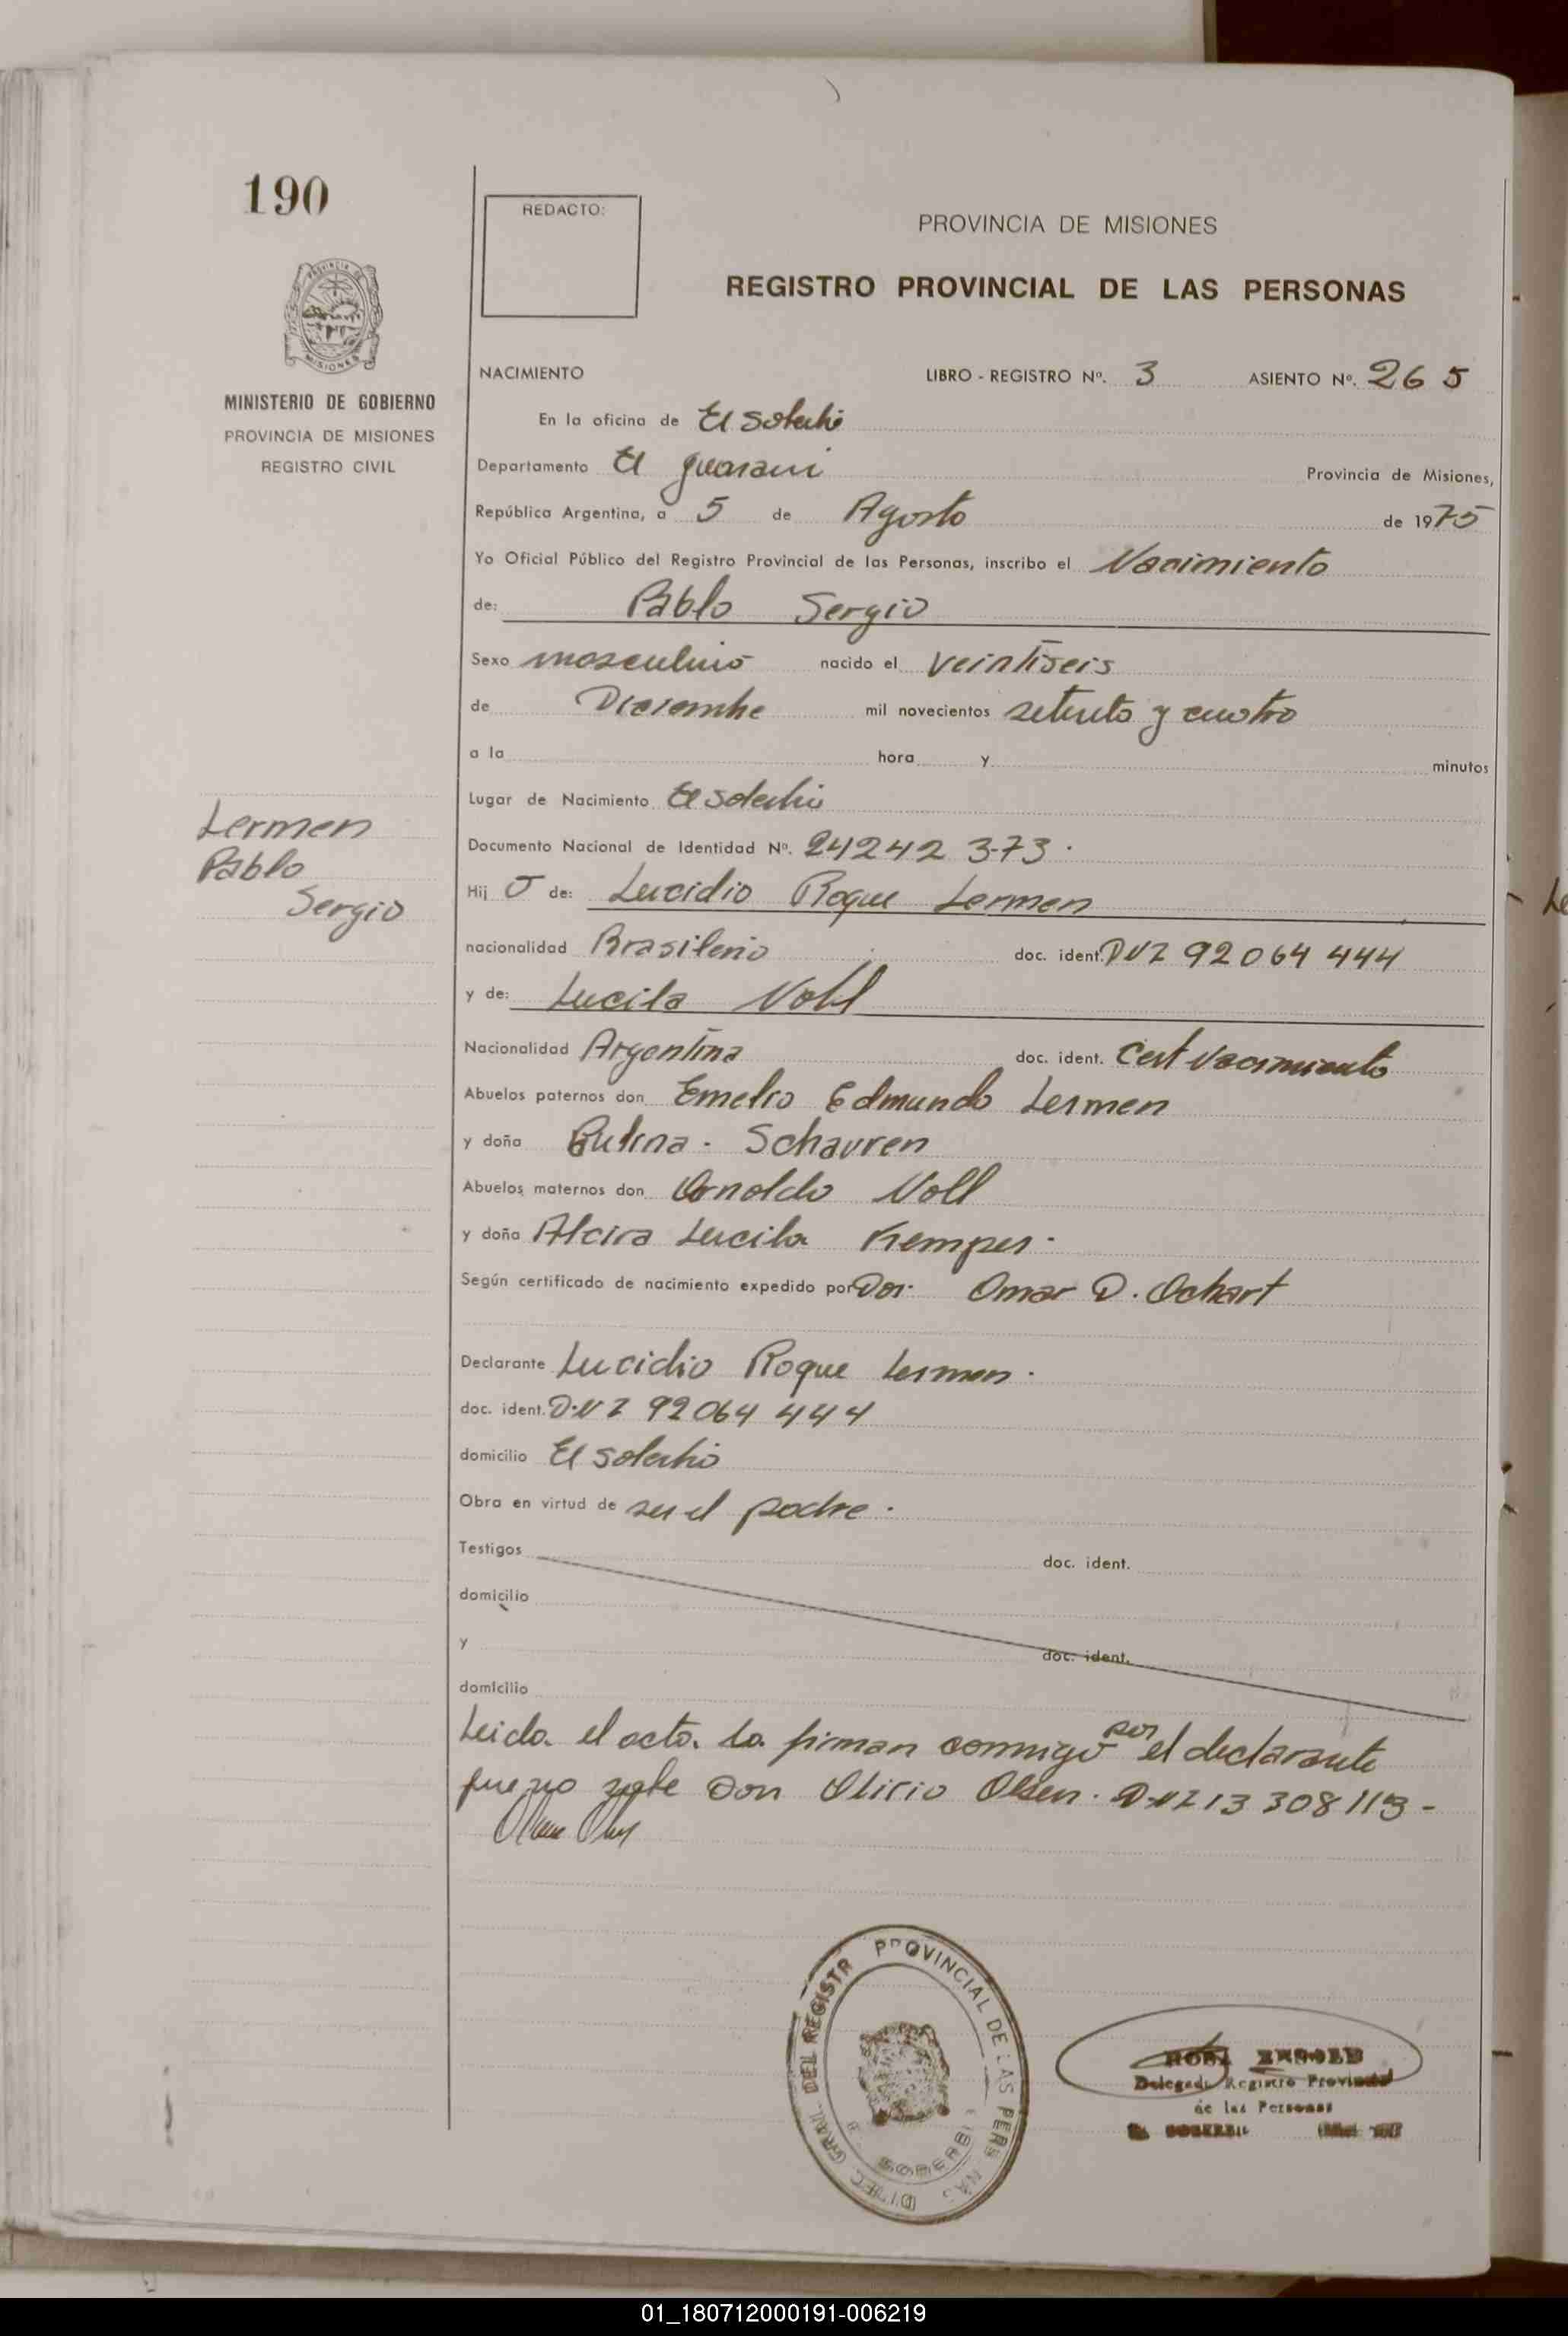 190
REDACTO:
PROVINCIA DE MISIONES
REGISTRO PROVINCIAL DE LAS PERSONAS
MINISTERIO DE GOBIERNO
PROVINCIA DE MISIONES
REGISTRO CIVIL
NACIMIENTO LIBRO - REGISTRO Nº. 3 ASIENTO Nº. 265
En la oficina de El Soberbio
Departamento El guarani Provincia de Misiones,
República Argentina, a 5 de Agosto de 1975
Yo Oficial Público del Registro Provincial de las Personas, inscribo el Nacimiento
de: Pablo Sergio
Sexo masculino nacido el veintiseis
de Diciembre mil novecientos setenta y cuatro
a la hora y minutos
Lugar de Nacimiento El Soberbio
Lermen
Pablo
Sergio
Documento Nacional de Identidad Nº. 24242 373.
Hij o de: Lucidio Roque Lermen
nacionalidad Brasilerio doc. ident. DNI 92064 444
y de: Lucila Noll
Nacionalidad Argentina doc. ident. Cert Nacimiento
Abuelos paternos don Emelio Edmundo Lermen
y doña Schauren
Abuelos maternos don Arnoldo Noll
y doña Alcira Lucila Kemper.
Según certificado de nacimiento expedido por Dor. Omar D. Ochart
Declarante Lucidio Roque Lermen.
doc. ident. D.N I 92064 444
domicilio El Soberbio
Obra en virtud de ser el padre.
Testigos doc. ident.
domicilio
y doc. ident.
domicilio
Leida el acta la firman conmigo por el declarante
que no sabe Don Olirio Olsen. DNI 13 308 113 -
DEL REGISTR PROVINCIAL DE LAS PERS NAS
Delegad Registro Provincial
de las Personas
01_180712000191-006219